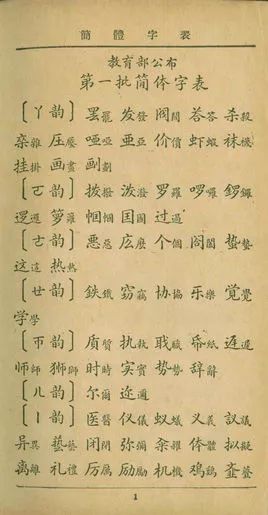 簡體字表
教育部公布
第一批简体字表
[ㄚ韵] 罢罷 发發 阀閥 荅答 杀殺
杂雜 压壓 哑啞 亚亞 价價 虾蝦 袜襪
挂掛 画畫 劃
[ㄛ韵] 拨撥 泼潑 罗羅 啰囉 锣鑼
逻邏 箩籮 帼幗 国國 过過
[ㄜ韵] 恶惡 庅麼 个個 阁閣 蛰蟄
这這 热熱
[ㄝ韵] 鉄鐵 窃竊 协協 乐樂 覚覺
学學
[ㄭ韵] 质質 执執 职職 帋紙 迟遲
师師 狮獅 时時 实實 势勢 辞辭
[ㄦ韵] 尔爾 迩邇
[ㄧ韵] 医醫 仪儀 蚁蟻 义義 议議
异異 艺藝 闭閉 弥彌 籴糴 体體 拟擬
离離 礼禮 厉厲 励勵 机機 鸡鷄
1